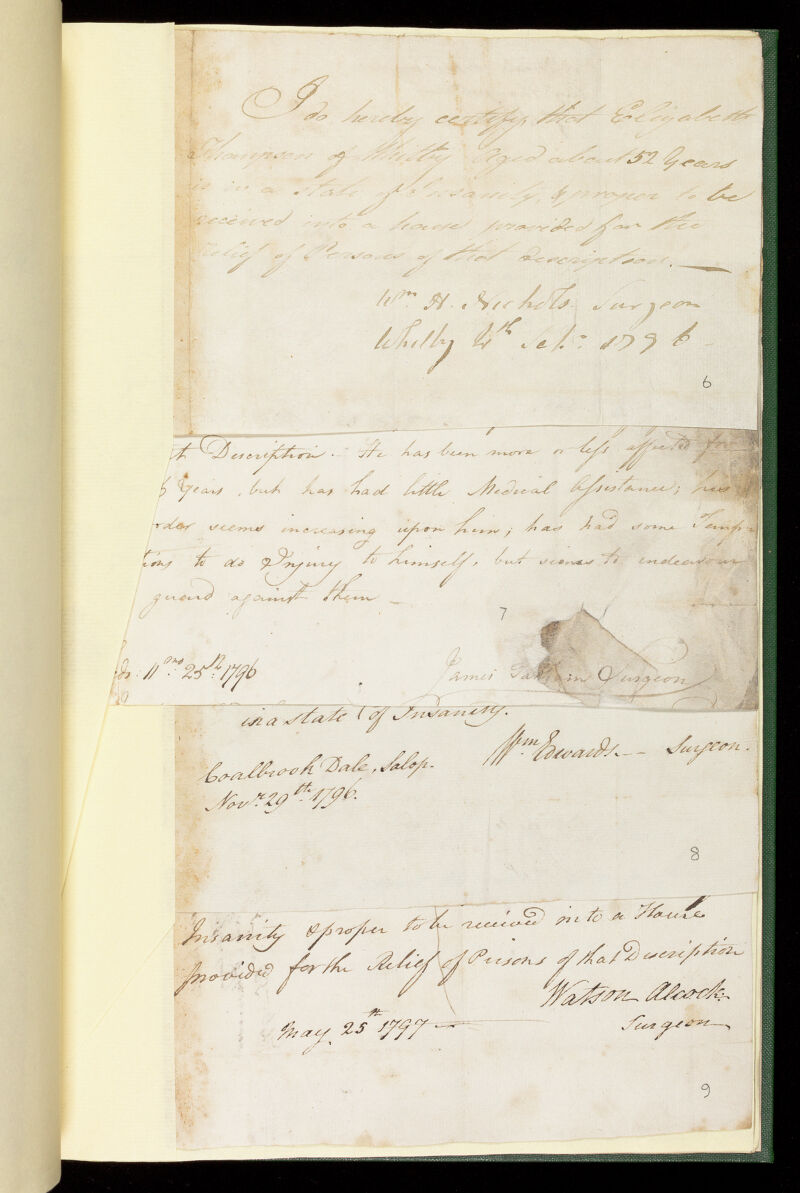 I do hereby certify that Elizabeth
Thompson of Whitby Aged about 52 Years
is in a state of Insanity, & proper to be
received into a house provided for the
relief of Persons of that description.
Wm. H. Nichols Surgeon
Whitby 4th Sepr. 1796
6
t Description. He has been more or less affected for
6 Years, but has had little Medical Assistance; his
order seems increasing upon him; has had some Temp
tions to do Injury to himself, but seems to endeavour
guard against them
7
ds: 11mo: 25th 1796
James Surgeon
in a state of Insanity.
Wm Edwards Surgeon.
Coalbrook Dale, Salop.
Novr. 29th 1796.
8
Insanity & proper to be received into a House
provided for the Relief of Persons of that Description
Watson Alcock
May 25th 1797
Surgeon
9